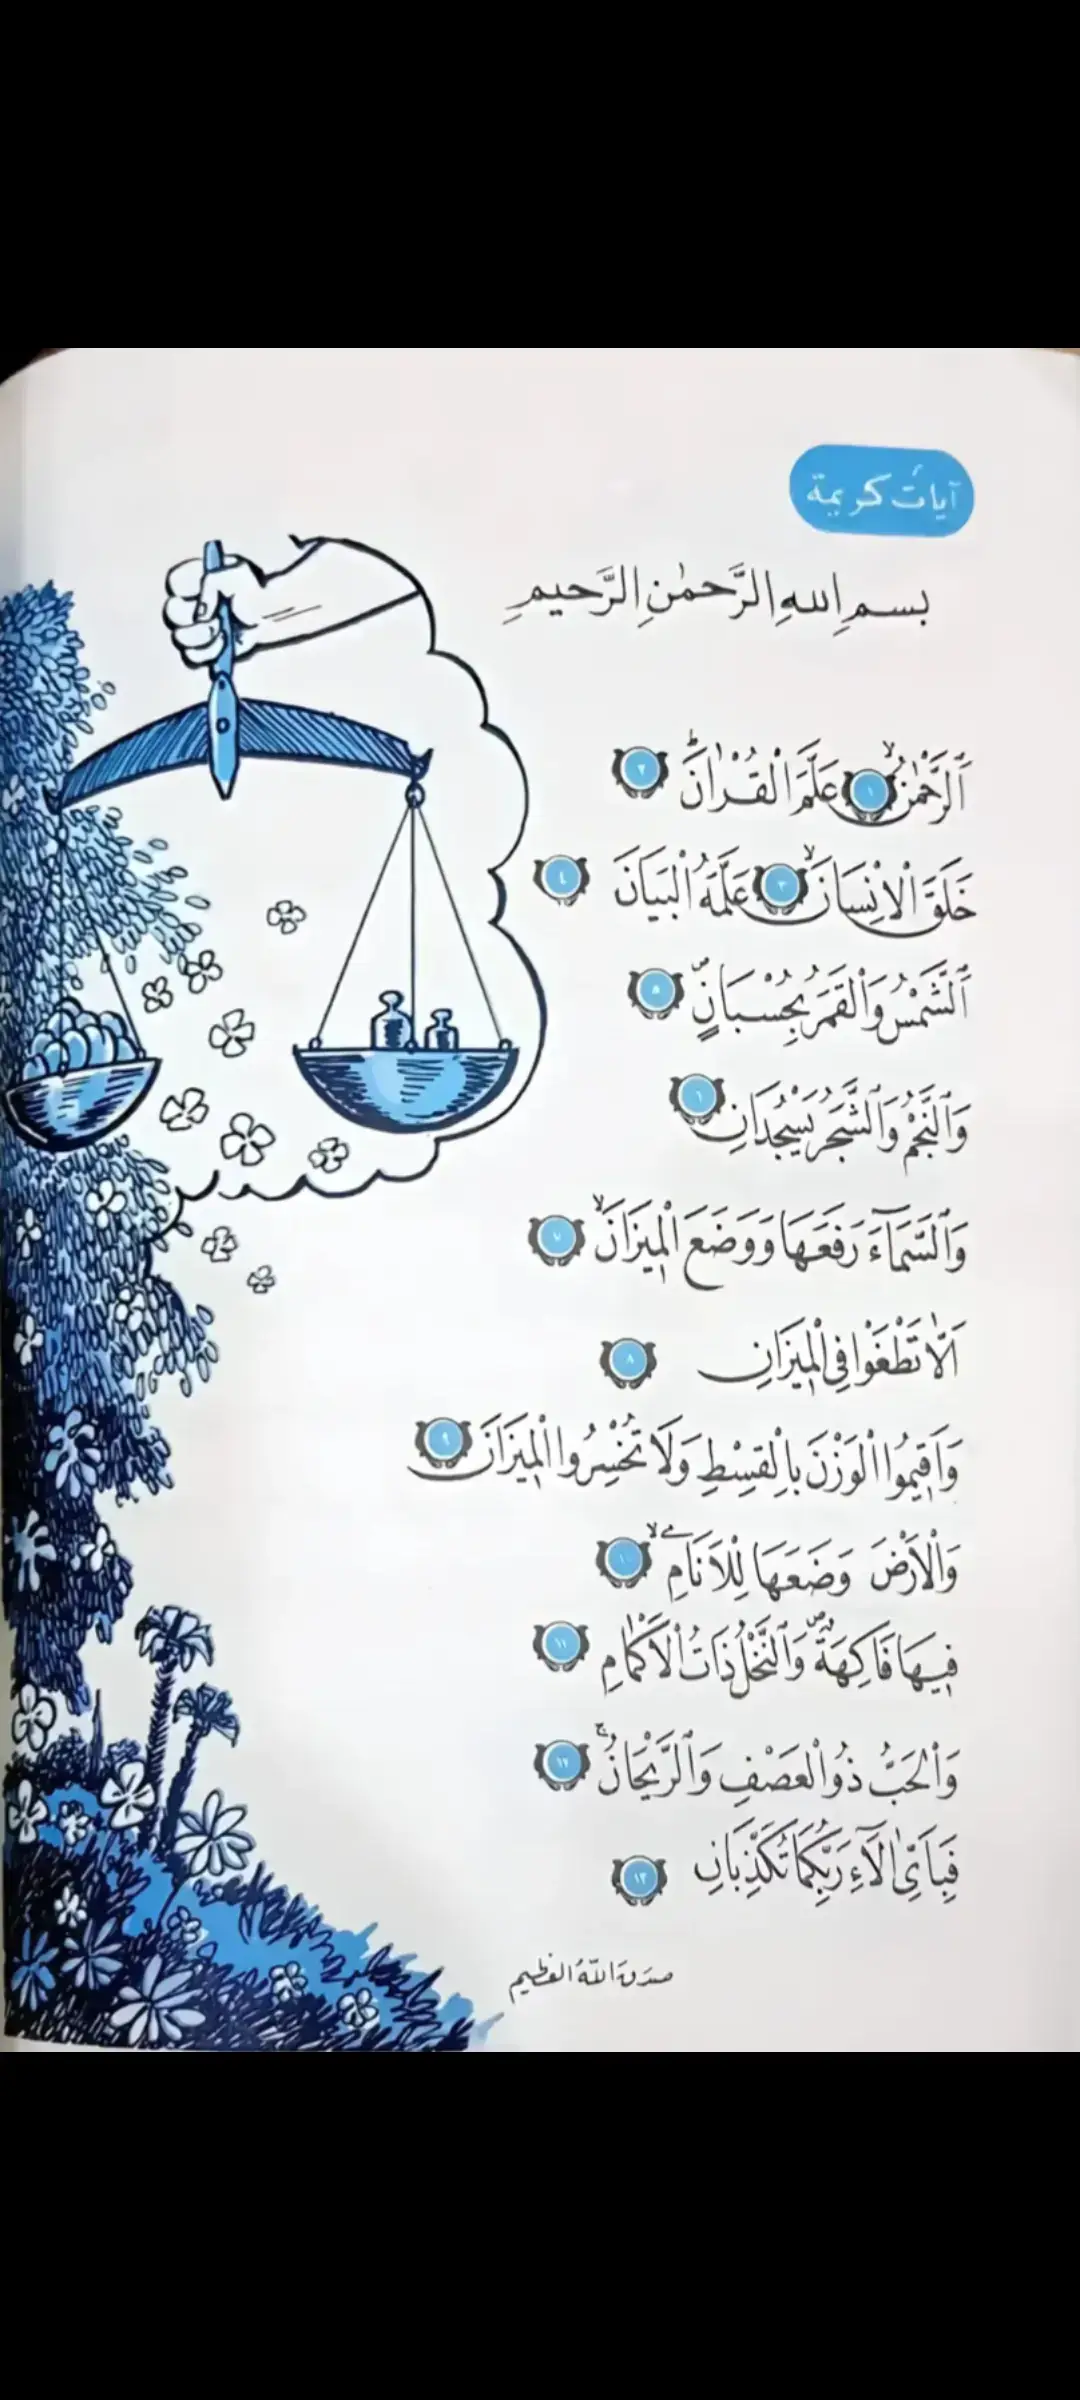 آيات كريمة
بسم الله الرَّحمٰنِ الرَّحيمِ
اَلرَّحْمٰنُۙ ١ عَلَّمَ الْقُرْاٰنَۜ ٢
خَلَقَ الْاِنْسَانَۙ ٣ عَلَّمَهُ الْبَيَانَ ٤
اَلشَّمْسُ وَالْقَمَرُ بِحُسْبَانٍۖ ٥
وَالنَّجْمُ وَالشَّجَرُ يَسْجُدَانِ ٦
وَالسَّمَآءَ رَفَعَهَا وَوَضَعَ الْمِيزَانَۙ ٧
اَلَّا تَطْغَوْا فِي الْمِيزَانِ ٨
وَاَقِيمُوا الْوَزْنَ بِالْقِسْطِ وَلَا تُخْسِرُوا الْمِيزَانَ ٩
وَالْاَرْضَ وَضَعَهَا لِلْاَنَامِۙ ١٠
فِيهَا فَاكِهَةٌۖ وَالنَّخْلُ ذَاتُ الْاَكْمَامِ ١١
وَالْحَبُّ ذُو الْعَصْفِ وَالرَّيْحَانُۚ ١٢
فَبِاَيِّ اٰلَآءِ رَبِّكُمَا تُكَذِّبَانِ ١٣
صدَقَ اللّهُ العَظيم